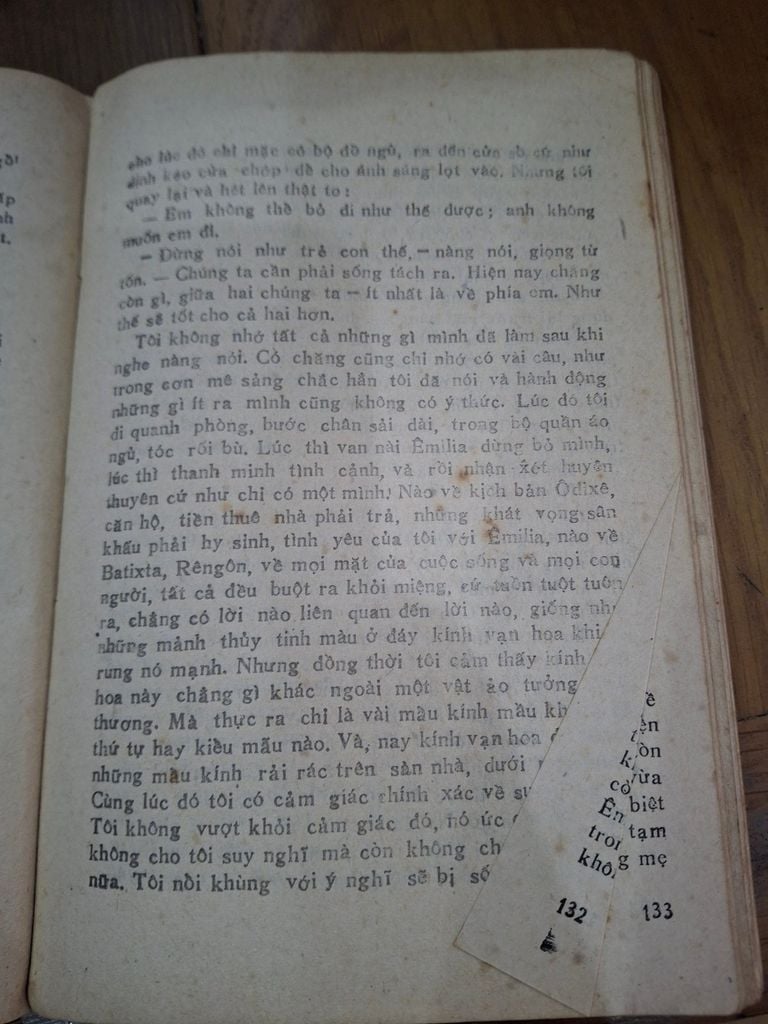 lúc đó chỉ mặc có bộ đồ ngủ, ra đến cửa sổ cứ như
định kéo cửa chớp để cho ánh sáng lọt vào. Nhưng tôi
quay lại và hét lên thật to:
— Em không thể bỏ đi như thế được; anh không
muốn em đi.
— Đừng nói như trẻ con thế, — nàng nói, giọng từ
tốn. — Chúng ta cần phải sống tách ra. Hiện nay chẳng
còn gì, giữa hai chúng ta — ít nhất là về phía em. Như
thế sẽ tốt cho cả hai hơn.
Tôi không nhớ tất cả những gì mình đã làm sau khi
nghe nàng nói. Có chăng cũng chỉ nhớ có vài câu, như
trong cơn mê sảng chắc hẳn tôi đã nói và hành động
những gì ít ra mình cũng không có ý thức. Lúc đó tôi
đi quanh phòng, bước chân sải dài, trong bộ quần áo
ngủ, tóc rối bù. Lúc thì van nài Êmilia đừng bỏ mình,
lúc thì thanh minh tình cảnh, và rồi nhận xét huyên
thuyên cứ như chỉ có một mình. Nào về kịch bản Ôđixê,
căn hộ, tiền thuê nhà phải trả, những khát vọng sân
khấu phải hy sinh, tình yêu của tôi với Êmilia, nào về
Batixta, Rêngôn, về mọi mặt của cuộc sống và mọi con
người, tất cả đều buột ra khỏi miệng, cứ tuôn tuột tuôn
ra, chẳng có lời nào liên quan đến lời nào, giống
những mảnh thủy tinh màu ở đáy kính vạn hoa khi
rung nó mạnh. Nhưng đồng thời tôi cảm thấy kính
hoa này chẳng gì khác ngoài một vật ảo tưởng
thương. Mà thực ra chỉ là vài mẩu kính mầu
thứ tự hay kiểu mẫu nào. Và, nay kính vạn hoa
những mẩu kính rải rác trên sàn nhà, dưới
Cùng lúc đó tôi có cảm giác chính xác về
Tôi không vượt khỏi cảm giác đó, nó ức
không cho tôi suy nghĩ mà còn không
nữa. Tôi nổi khùng với ý nghĩ sẽ bị
biệt
tạm
mẹ
132
133